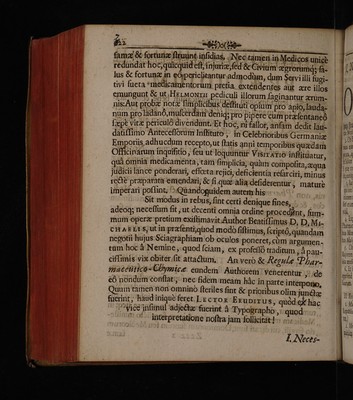 222
famæ & fortunæ struunt insidias. Nec tamen in Medicos unicè
redundat hoc, quicquid est, injuriæ, sed & Civium ægrorumq; sa-
lus & fortunæ in eo periclitantur admodùm, dum Servi illi fugi-
tivi sueta medicamentorum pretia extendentes aut ære illos
emungunt & ut HELMONTII pediculi illorum saginantur ærum-
nis: Aut probæ notæ simplicibus destituti opium pro apio, lauda-
num pro ladanô, muscerdam deniq; pro pipere cum præsentaneô
sæpè vitæ periculô divendunt. Et hoc, ni fallor, ansam dedit lau-
datissimo Antecessorum Instituto, in Celebrioribus Germaniæ
Emporiis adhucdum recepto, ut statis anni temporibus quædam
Officinarum inquisitio, seu ut loquuntur VISITATIO instituatur,
quâ omnia medicamenta, tam simplicia, quàm composita, æquâ
judicii lance ponderari, effœta rejici, deficientia resarciri, minus
rectè præparata emendari, & si quæ alia desiderentur, maturè
imperari possint. Quandoquidem autem his
Sit modus in rebus, sint certi denique fines,
adeoq; necessum sit, ut decenti omnia ordine procedant, sum-
mum operæ pretium existimavit Author Beatissimus D. D. MI-
CHAELIS, ut in præsenti, quod modò sistimus, scriptô, quandam
negotii hujus Sciagraphiam ob oculos poneret, cùm argumen-
tum hoc à Nemine, quod sciam, ex professô traditum, à pau-
cissimis vix obiter sit attactum. An verò & Regulæ Phar-
maceutico-Chymicæ eundem Authorem venerentur, de
eô nondum constat, nec fidem meam hâc in parte interpono.
Quam tamen non omninò steriles sint & prioribus olim junctæ
fuerint, haud iniquè feret LECTOR ERUDITUS, quòd & hac
vice insimul adjectæ fuerint à Typographo, quod
interpretatione nostra jam sollicitat!
I. Neces-